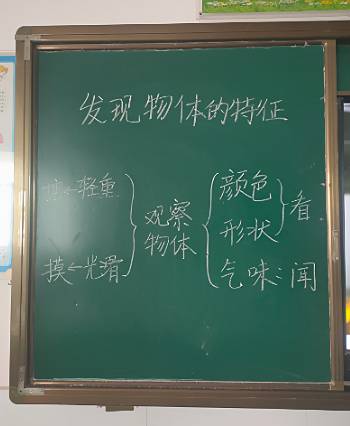 发现物体的特征
←轻重
摸←光滑
观察
物体
颜色
形状
看
气味:闻